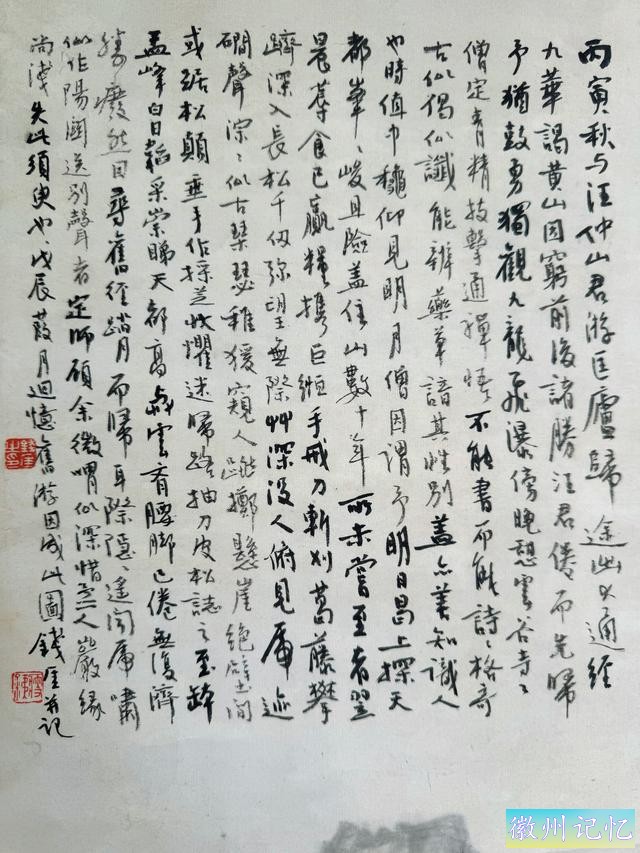 丙寅秋与汪仲山君游匡廬歸途出大通經
九華謁黄山因窮前後諸勝汪君倦而先歸
予猶鼓勇獨觀九龍飛瀑傍晚憩雲谷寺〻
僧定青精技擊通禪悟不能書而能詩〻格奇
古似偈似讖能辨藥草諳其性别蓋亦善知識人
也時值中秋仰見明月僧因謂予明日曷上探天
都峯〻峻且險蓋住山數十年所未嘗至者翌
晨蓐食已贏糧携巨絙手戒刀斬刈葛藤攀
躋深入長松千仞弥望無際艸深没人俯見虎迹
磵聲淙〻似古琴瑟稚猨窺人跳擲懸崖絶壁間
或踞松顛垂手作採芝狀懼迷歸路抽刀皮松誌之至缽
盂峰白日韜采崇睇天都高齾雲脊腰脚已倦無復濟
勝癈然曰尋舊徑踏月而歸耳際隱〻遥聞虎嘯
似作陽關送别聲者定師顧余微喟似深惜主人巖緣
尚淺失此須臾也戊辰葭月迴憶舊游因成此圖錢厓并記
徽州记忆